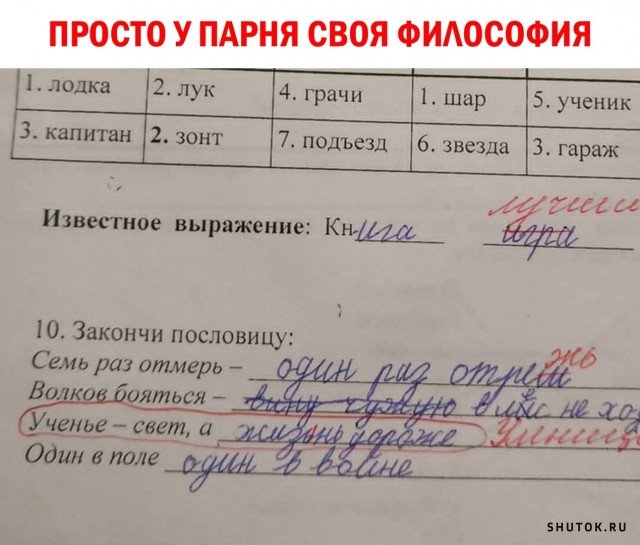 ПРОСТО У ПАРНЯ СВОЯ ФИЛОСОФИЯ
1. лодка 2. лук 4. грачи 1. шар 5. ученик
3. капитан 2. зонт 7. подъезд 6. звезда 3. гараж
лучши
Известное выражение: Книга игра
10. Закончи пословицу:
Семь раз отмерь – один раз отреш жь
Волков бояться – вину чужую в лес не хо
Ученье – свет, а жизнь дороже
Один в поле один в войне
SHUTOK.RU